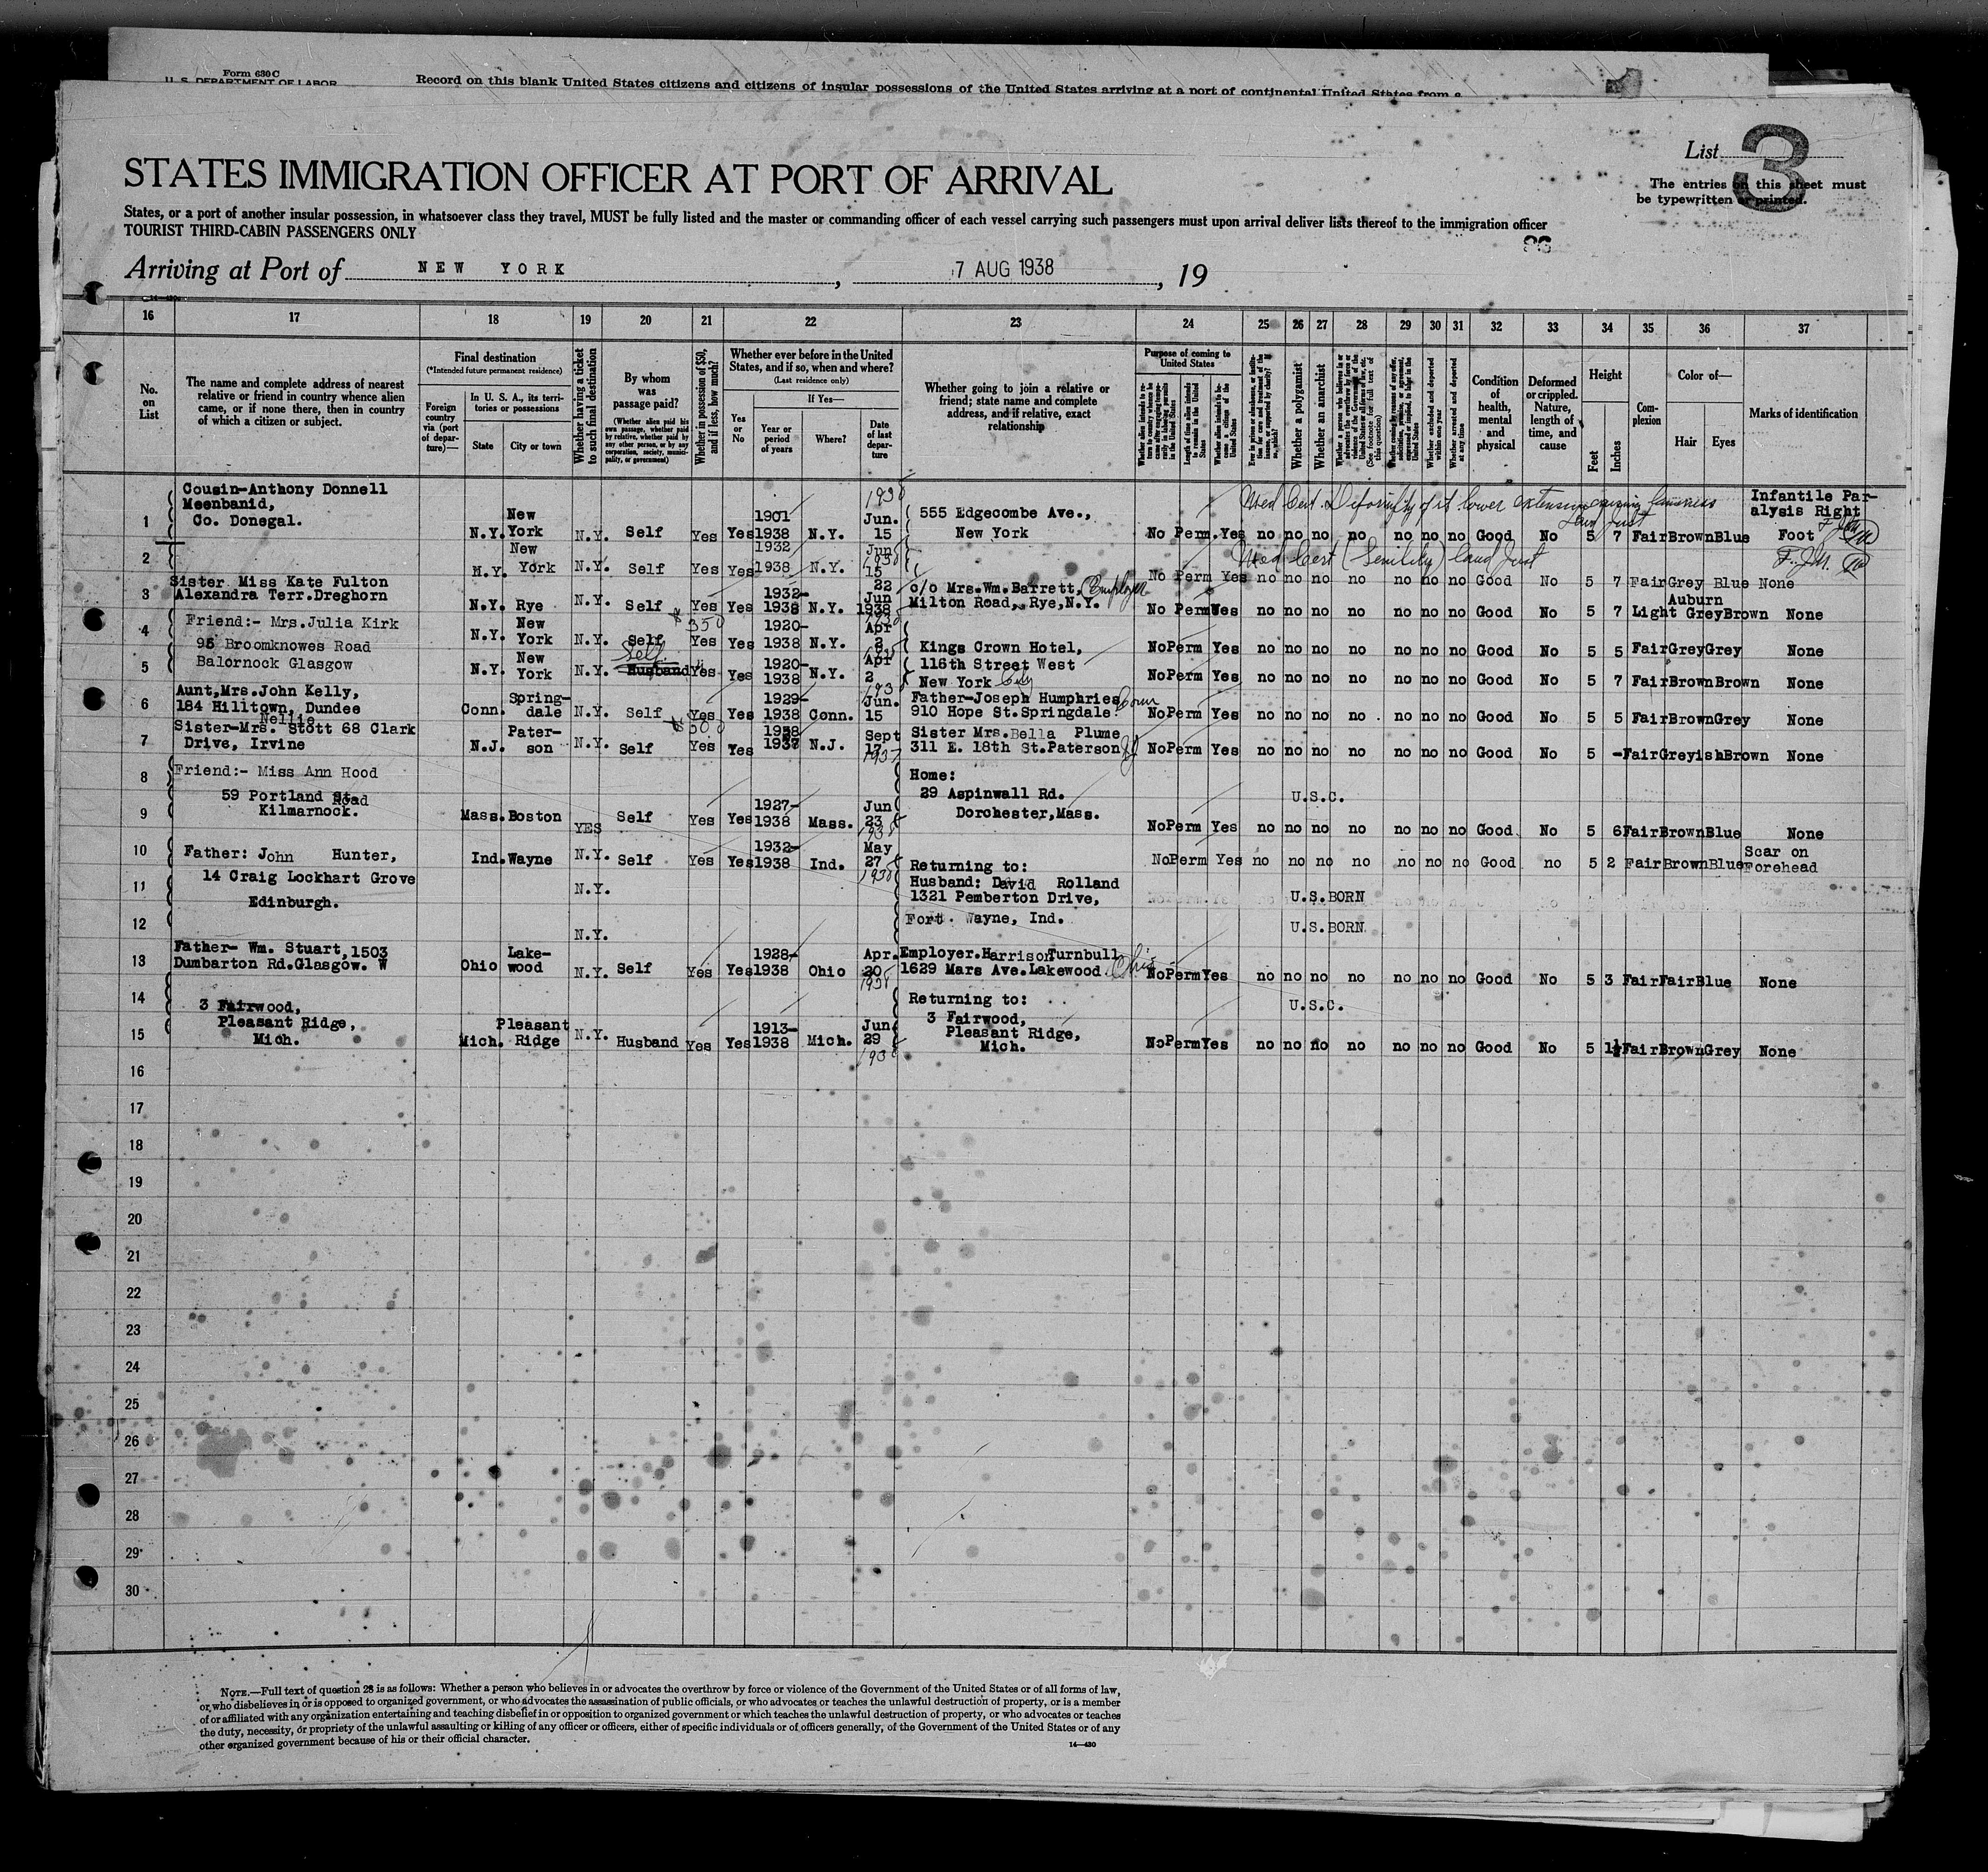 Form 630 C
U. S. DEPARTMENT OF LABOR
Record on this blank United States citizens and citizens of insular possessions of the United States arriving at a port of continental United States from a
List 3
STATES IMMIGRATION OFFICER AT PORT OF ARRIVAL
The entries on this sheet must
be typewritten or printed.
States, or a port of another insular possession, in whatsoever class they travel, MUST be fully listed and the master or commanding officer of each vessel carrying such passengers must upon arrival deliver lists thereof to the immigration officer
TOURIST THIRD-CABIN PASSENGERS ONLY
Arriving at Port of NEW YORK, 7 AUG 1938, 19
16 17 18 19 20 21 22 23 24 25 26 27 28 29 30 31 32 33 34 35 36 37
No. on List
The name and complete address of nearest relative or friend in country whence alien came, or if none there, then in country of which a citizen or subject.
Final destination
(*Intended future permanent residence)
Foreign country via (port of departure)—
In U. S. A., its territories or possessions
State
City or town
Whether having a ticket to such final destination
By whom was passage paid?
(Whether alien paid his own passage, whether paid by relative, whether paid by any other person, or by any corporation, society, municipality, or government)
Whether in possession of $50, and if less, how much?
Whether ever before in the United States, and if so, when and where?
(Last residence only)
Yes or No
If Yes—
Year or period of years
Where?
Date of last departure
Whether going to join a relative or friend; state name and complete address, and if relative, exact relationship
Purpose of coming to United States
Whether a polygamist
Whether an anarchist
Condition of health, mental and physical
Deformed or crippled. Nature, length of time, and cause
Height
Feet
Inches
Complexion
Color of—
Hair
Eyes
Marks of identification
1 Cousin-Anthony Donnell Meenbanid, Co. Donegal. N.Y. New York N.Y. Self Yes Yes 1901 1938 N.Y. Jun. 15 1938 555 Edgecombe Ave., New York No Perm. Yes no no no no no no no Good No 5 7 Fair Brown Blue Infantile Paralysis Right Foot
2 N.Y. New York N.Y. Self Yes Yes 1932 1938 N.Y. Jun 15 1938 No Perm Yes no no no no no no no Good No 5 7 Fair Grey Blue None
3 Sister Miss Kate Fulton Alexandra Terr. Dreghorn N.Y. Rye N.Y. Self Yes Yes 1932- 1938 N.Y. 22 Jun 1938 c/o Mrs. Wm. Barrett, Employer Milton Road, Rye, N.Y. No Perm Yes no no no no no no no Good No 5 7 Light Auburn Grey Brown None
4 Friend:- Mrs. Julia Kirk N.Y. New York N.Y. Self $350 Yes Yes 1920- 1938 N.Y. Apr 2 1938 Kings Crown Hotel, No Perm Yes no no no no no no no Good No 5 5 Fair Grey Grey None
5 95 Broomknowes Road Balornock Glasgow N.Y. New York N.Y. Self Husband Yes Yes 1920- 1938 N.Y. Apr 2 116th Street West New York City No Perm Yes no no no no no no no Good No 5 7 Fair Brown Brown None
6 Aunt, Mrs. John Kelly, 184 Hilltown, Dundee Conn. Springdale N.Y. Self Yes Yes 1929- 1938 Conn. Jun. 15 1938 Father-Joseph Humphries 910 Hope St. Springdale. Conn No Perm Yes no no no no no no no Good No 5 5 Fair Brown Grey None
7 Sister-Mrs. Nellie Stott 68 Clark Drive, Irvine N.J. Paterson N.Y. Self $50.0 Yes Yes 1937 N.J. Sept 17 1937 Sister Mrs. Bella Plume 311 E. 18th St. Paterson NJ No Perm Yes no no no no no no no Good No 5 - Fair Greyish Brown None
8 Friend:- Miss Ann Hood Home: 29 Aspinwall Rd. U.S.C.
9 59 Portland Road Kilmarnock. Mass. Boston YES Self Yes Yes 1927- 1938 Mass. Jun 23 1938 Dorchester, Mass. No Perm Yes no no no no no no no Good No 5 6 Fair Brown Blue None
10 Father: John Hunter, Ind. Wayne N.Y. Self Yes Yes 1932- 1938 Ind. May 27 1938 Returning to: No Perm Yes no no no no no no no Good no 5 2 Fair Brown Blue Scar on Forehead
11 14 Craig Lockhart Grove N.Y. Husband: David Rolland 1321 Pemberton Drive, U.S. BORN
12 Edinburgh. N.Y. Fort. Wayne, Ind. U.S. BORN
13 Father- Wm. Stuart, 1503 Dumbarton Rd. Glasgow. W Ohio Lakewood N.Y. Self Yes Yes 1928- 1938 Ohio Apr. 20 1938 Employer. Harrison Turnbull 1629 Mars Ave. Lakewood. Ohio No Perm Yes no no no no no no no Good No 5 3 Fair Fair Blue None
14 3 Fairwood, Returning to: U.S.C.
15 Pleasant Ridge, Mich. Mich. Pleasant Ridge N.Y. Husband Yes Yes 1913- 1938 Mich. Jun 29 1938 3 Fairwood, Pleasant Ridge, Mich. No Perm Yes no no no no no no no Good No 5 1½ Fair Brown Grey None
16
17
18
19
20
21
22
23
24
25
26
27
28
29
30
NOTE.—Full text of question 28 is as follows: Whether a person who believes in or advocates the overthrow by force or violence of the Government of the United States or of all forms of law,
or who disbelieves in or is opposed to organized government, or who advocates the assassination of public officials, or who advocates or teaches the unlawful destruction of property, or is a member
of or affiliated with any organization entertaining and teaching disbelief in or opposition to organized government or which teaches the unlawful destruction of property, or who advocates or teaches
the duty, necessity, or propriety of the unlawful assaulting or killing of any officer or officers, either of specific individuals or of officers generally, of the Government of the United States or of any
other organized government because of his or their official character.
14—430